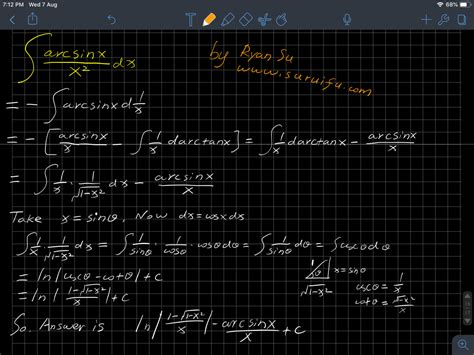 7:12 PM Wed 7 Aug 68%
∫ arcsinx/x² dx
by Ryan Su
www.suruifu.com
= - ∫ arcsinx d 1/x
= - [ arcsinx/x - ∫ 1/x darctanx ] = ∫ 1/x darctanx - arcsinx/x
= ∫ 1/x · 1/√(1-x²) dx - arcsinx/x
Take x = sinθ, Now dx = cosxdx
∫ 1/x · 1/√(1-x²) dx = ∫ 1/sinθ · 1/cosθ · cosθdθ = ∫ 1/sinθ dθ = ∫ cscθdθ
= ln|cscθ - cotθ| + c
θ x = sinθ
√(1-x²)
cscθ = 1/x
= ln| (1-√(1-x²))/x | + c
cotθ = √(1-x²)/x
So. Answer is ln| (1-√(1-x²))/x | - arcsinx/x + c